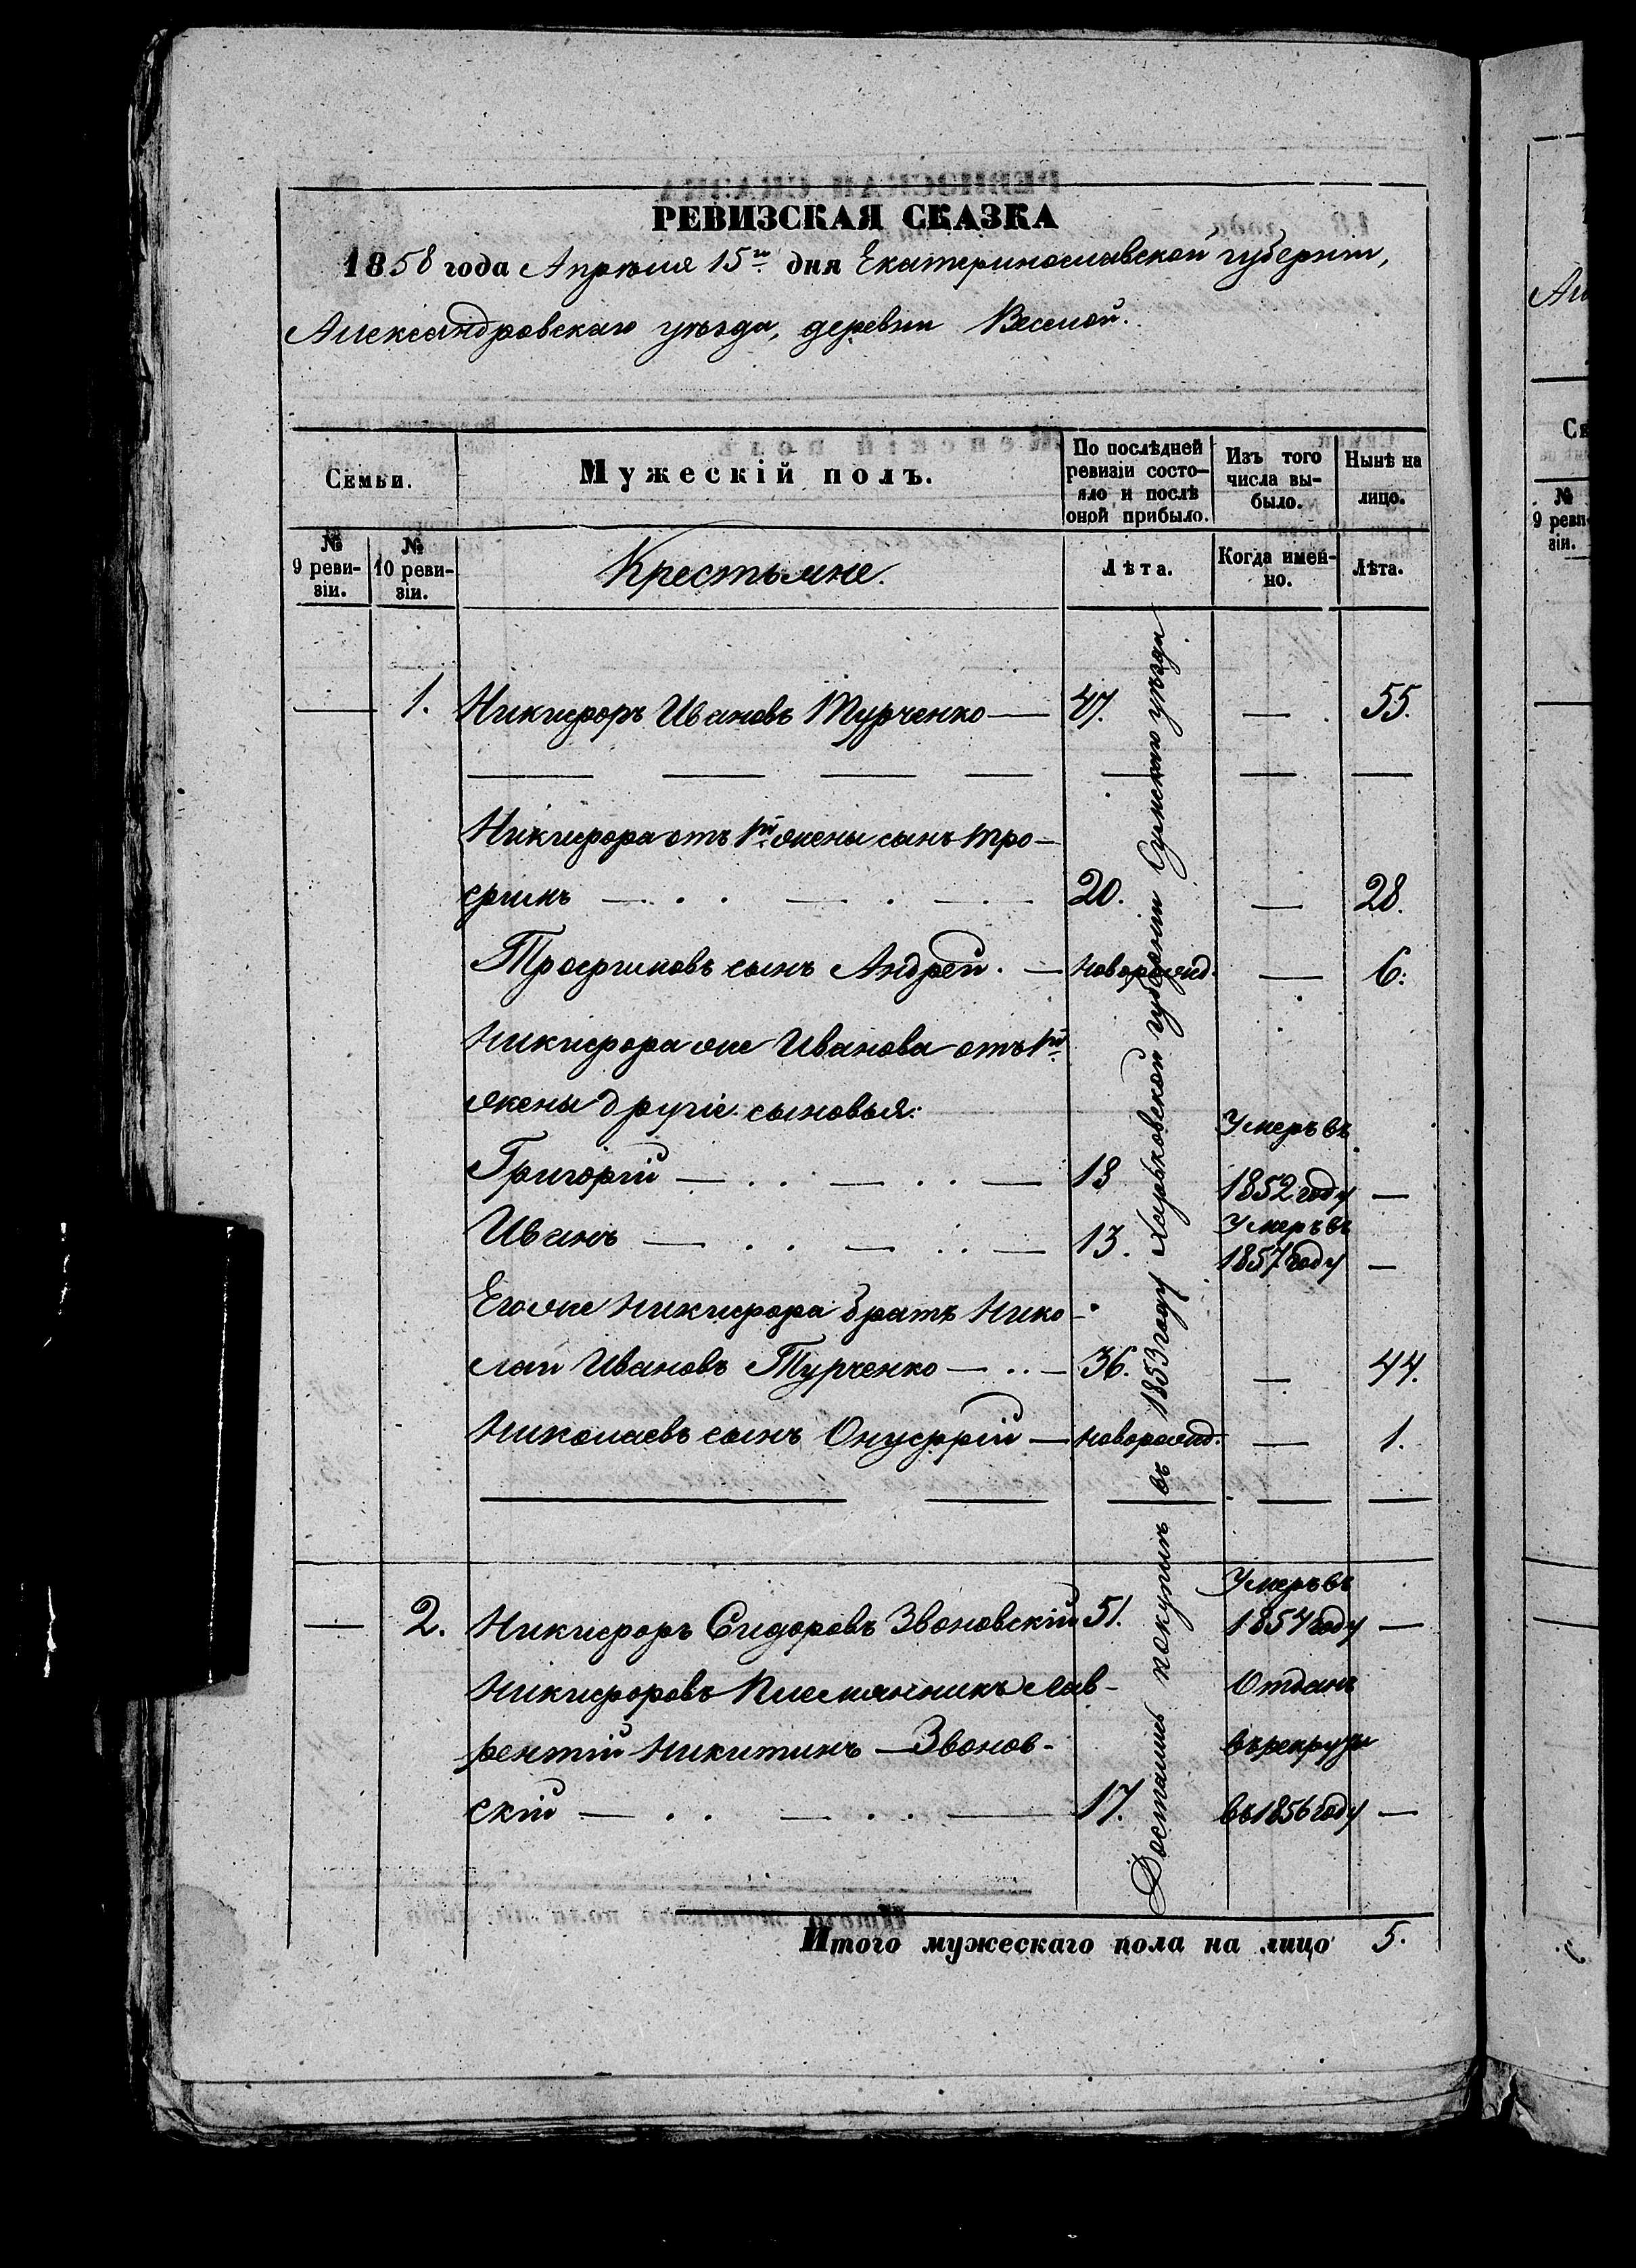 РЕВИЗСКАЯ СКАЗКА
1858 года Апрѣля 15го дня Екатеринославской губерніи,
Александровскаго уѣзда, деревни Веселой.
Семьи.
Мужескій полъ.
По послѣдней
ревизіи состо-
яло и послѣ
оной прибыло.
Изъ того
числа вы-
было.
Нынѣ на
лицо.
№
9 реви-
зіи.
№
10 реви-
зіи.
Крестьяне.
Лѣта.
Когда имен-
но.
Лѣта.
1. Никифоръ Ивановъ Турченко — 47. — 55.
Никифора отъ 1й жены сынъ Тро-
фимъ 20. — 28.
Трофимовъ сынъ Андрей. — новорожд. — 6.
Никифора же Иванова отъ 1й
жены другіе сыновья:
Григорій 18 Умеръ въ 1852 году —
Иванъ 13. Умеръ въ 1857 году —
Его же Никифора братъ Нико-
лай Ивановъ Турченко 36. — 44.
Николаевъ сынъ Онуфрій — новорожд. — 1.
2. Никифоръ Сидоровъ Звоновскій 51. Умеръ въ 1857 году —
Никифоровъ Племянникъ Лав-
рентій Никитинъ Звонов-
скій 17. Отданъ въ рекруты въ 1856 году —
Достались покупкъ въ 1853 году Харьковской губерніи Сумскаго уѣзда
Итого мужескаго пола на лицо 5.
№
9 реви-
зіи.